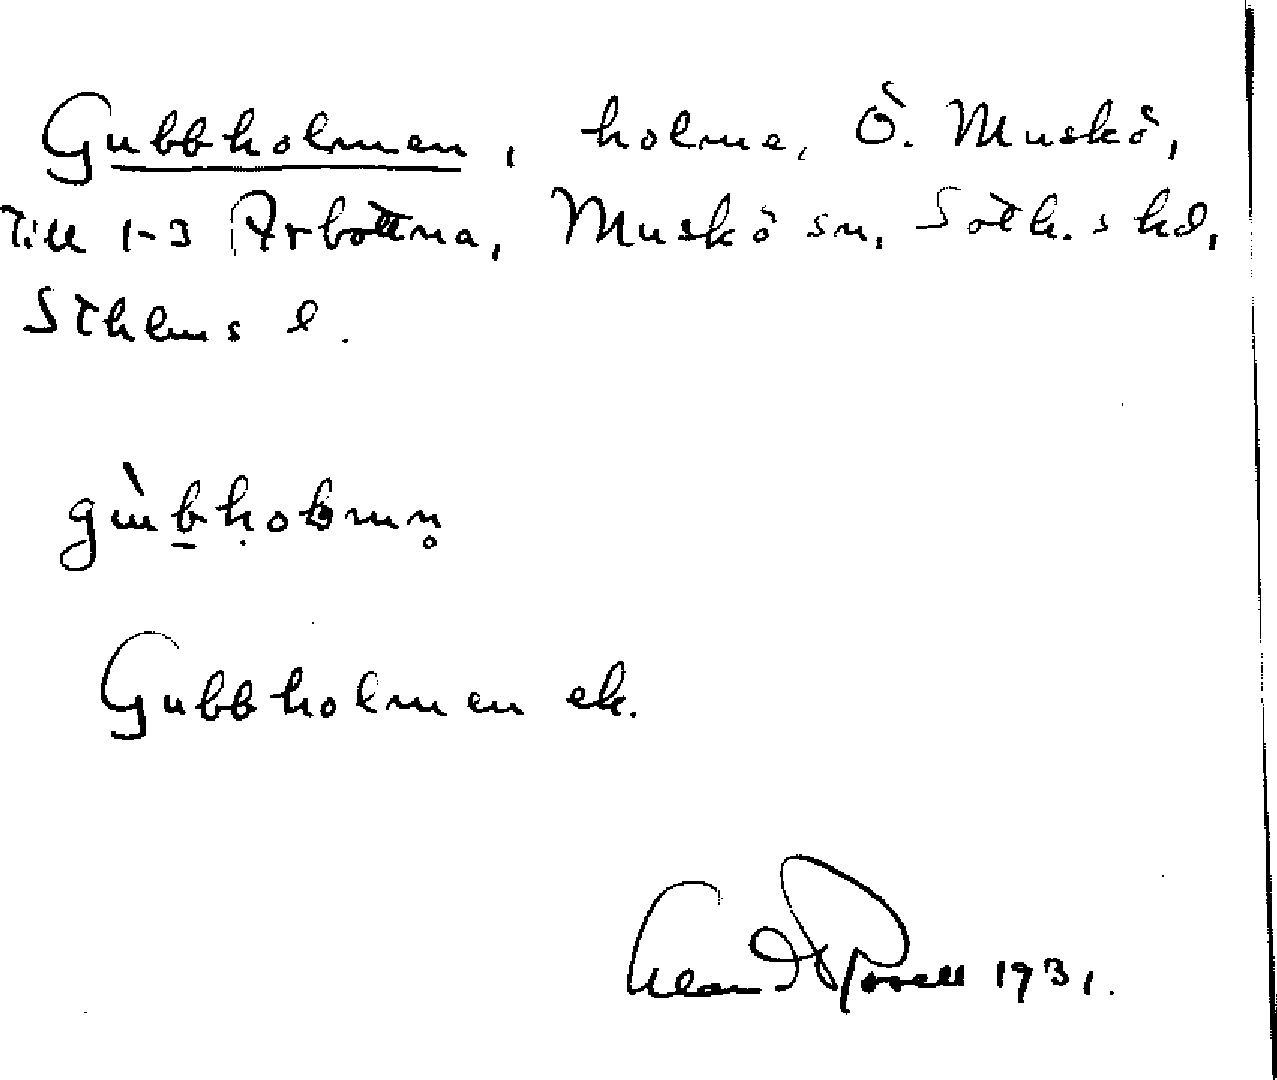 Gubbholmen, holme, Ö. Muskö,
till 1-3 Arbottna, Muskö sn, Soth.s hd,
Sthlms l.
Gubbholmen ek.
1931.